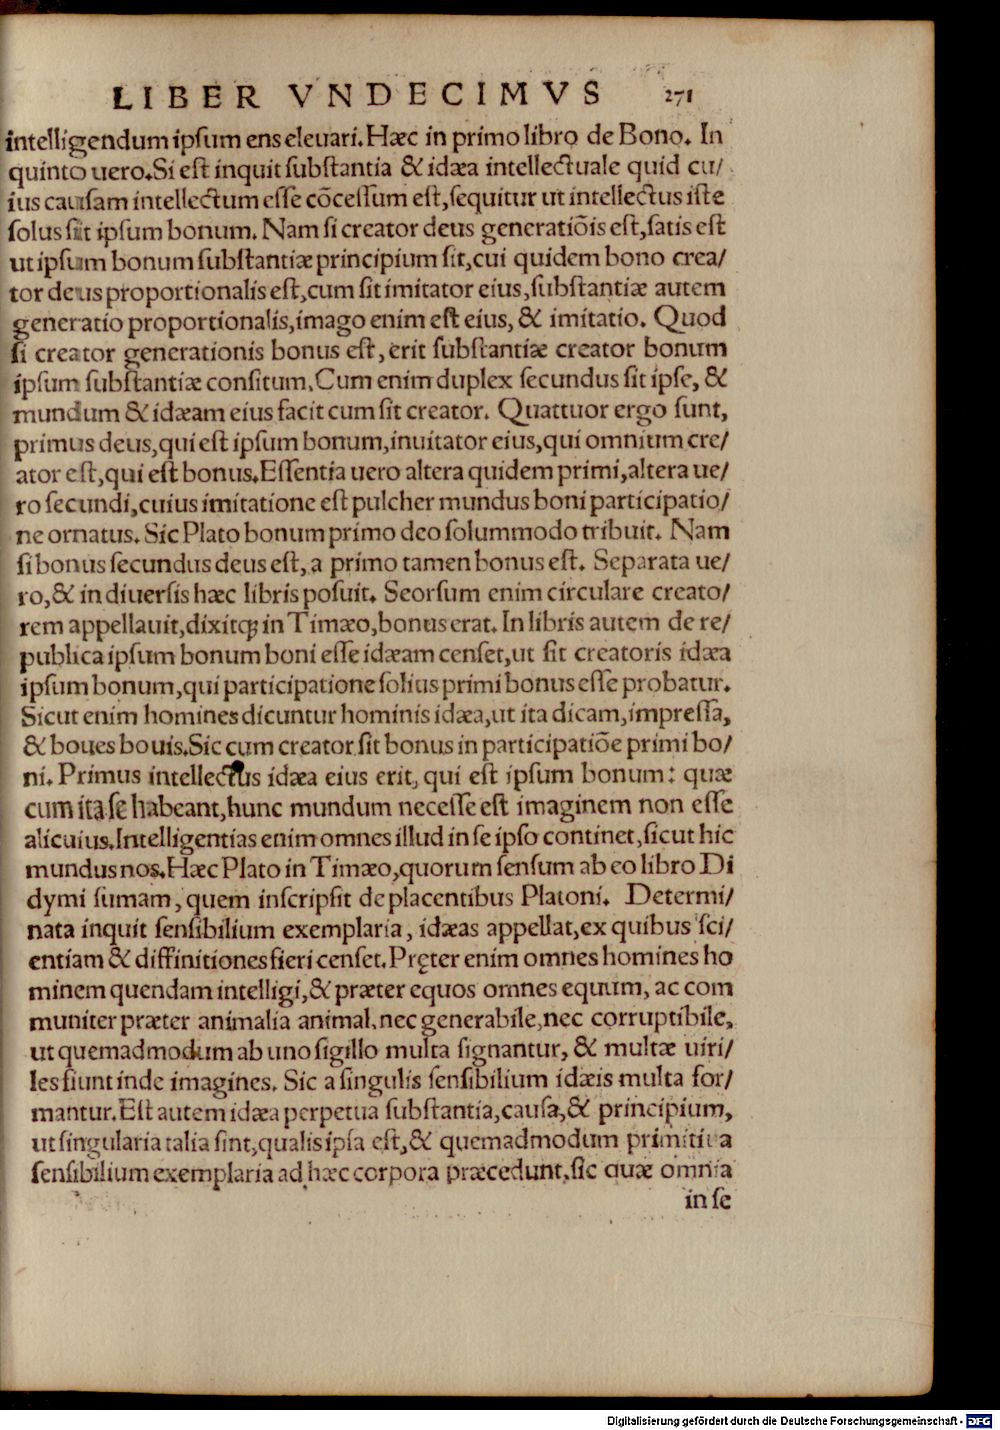 LIBER VNDECIMVS 271
intelligendum ipſum ens eleuari. Hæc in primo libro de Bono. In
quinto uero. Si eſt inquit ſubſtantia & idæa intellectuale quid cu/
ius cauſam intellectum eſſe cõceſſum eſt, ſequitur ut intellectus iſte
ſolus ſit ipſum bonum. Nam ſi creator deus generatiõis eſt, ſatis eſt
ut ipſum bonum ſubſtantiæ principium ſit, cui quidem bono crea/
tor deus proportionalis eſt, cum ſit imitator eius, ſubſtantiæ autem
generatio proportionalis, imago enim eſt eius, & imitatio. Quod
ſi creator generationis bonus eſt, erit ſubſtantiæ creator bonum
ipſum ſubſtantiæ conſitum. Cum enim duplex ſecundus ſit ipſe, &
mundum & idæam eius facit cum ſit creator. Quattuor ergo ſunt,
primus deus, qui eſt ipſum bonum, inuitator eius, qui omnium cre/
ator eſt, qui eſt bonus. Eſſentia uero altera quidem primi, altera ue/
ro ſecundi, cuius imitatione eſt pulcher mundus boni participatio/
ne ornatus. Sic Plato bonum primo deo ſolummodo tribuit. Nam
ſi bonus ſecundus deus eſt, a primo tamen bonus eſt. Separata ue/
ro, & in diuerſis hæc libris poſuit. Seorſum enim circulare creato/
rem appellauit, dixitqꝫ in Timæo, bonus erat. In libris autem de re/
publica ipſum bonum boni eſſe idæam cenſet, ut ſit creatoris idæa
ipſum bonum, qui participatione ſolius primi bonus eſſe probatur.
Sicut enim homines dicuntur hominis idæa, ut ita dicam, impreſſa,
& boues bouis. Sic cum creator ſit bonus in participatiõe primi bo/
ni. Primus intellectus idæa eius erit, qui eſt ipſum bonum: quæ
cum ita ſe habeant, hunc mundum neceſſe eſt imaginem non eſſe
alicuius. Intelligentias enim omnes illud in ſe ipſo continet, ſicut hic
mundus nos. Hæc Plato in Timæo, quorum ſenſum ab eo libro Di
dymi ſumam, quem inſcripſit de placentibus Platoni. Determi/
nata inquit ſenſibilium exemplaria, idæas appellat, ex quibus ſci/
entiam & diffinitiones fieri cenſet. Pręter enim omnes homines ho
minem quendam intelligi, & præter equos omnes equum, ac com
muniter præter animalia animal, nec generabile, nec corruptibile,
ut quemadmodum ab uno ſigillo multa ſignantur, & multæ uiri/
les fiunt inde imagines. Sic a ſingulis ſenſibilium idæis multa for/
mantur. Eſt autem idæa perpetua ſubſtantia, cauſa, & principium,
ut ſingularia talia ſint, qualis ipſa eſt, & quemadmodum primitiua
ſenſibilium exemplaria ad hæc corpora præcedunt, ſic quæ omnia
in ſe
Digitalisierung gefördert durch die Deutsche Forschungsgemeinschaft - DFG